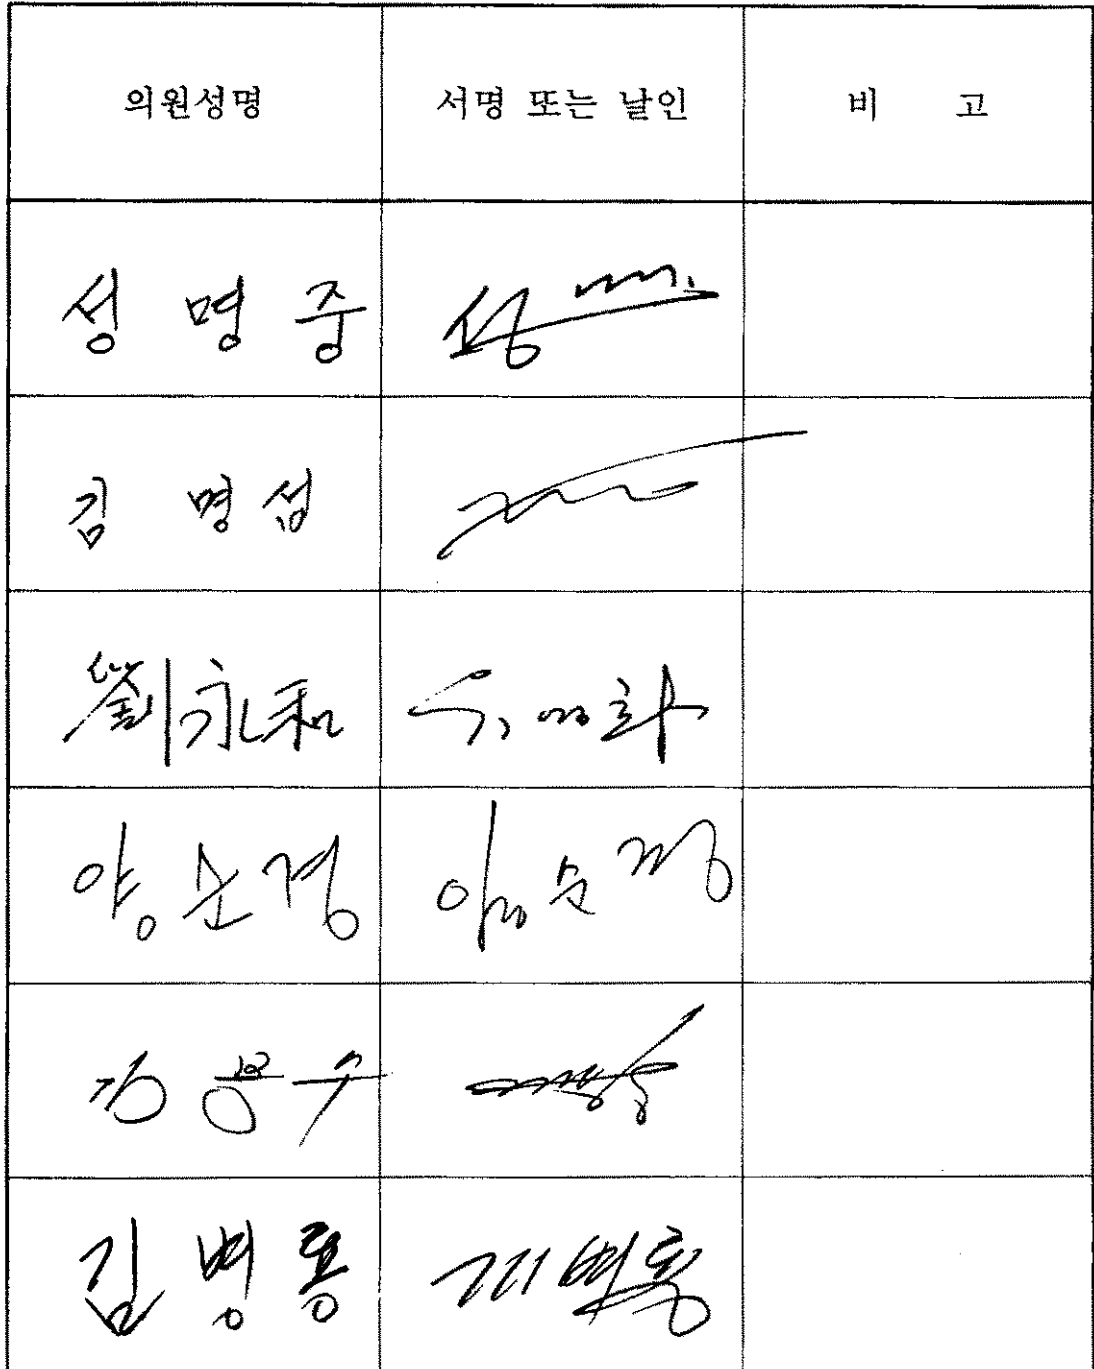 의원성명 서명 또는 날인 비 고
성 명 중
김 명 섭
劉永和 유영화
양 순 경 양순경
김 용 수
김 병 룡 김병룡